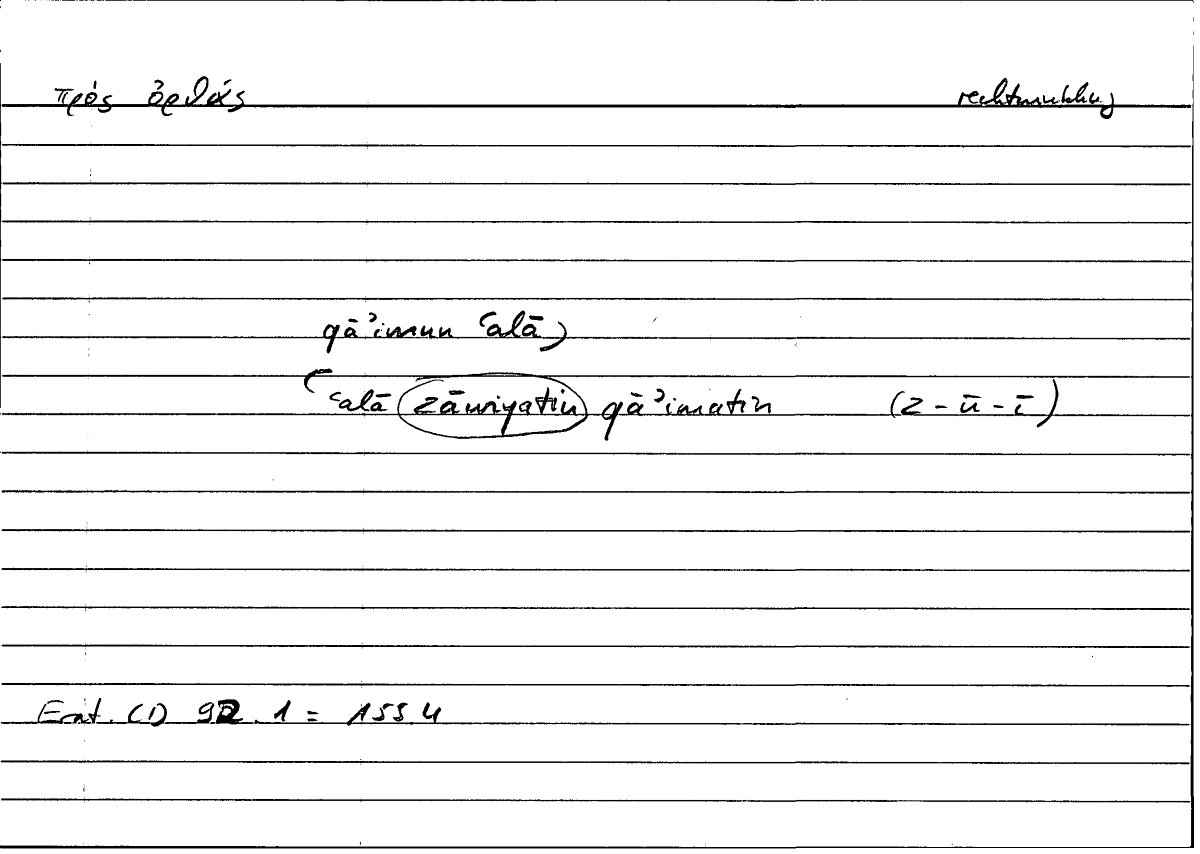 πρὸς ὀρθάς rechtwinklig
qāʾimun ʿalā)
(ʿalā zāwiyatin qāʾimatin (z-ū-ī)
Erat. (1) 92.1 = 155.4